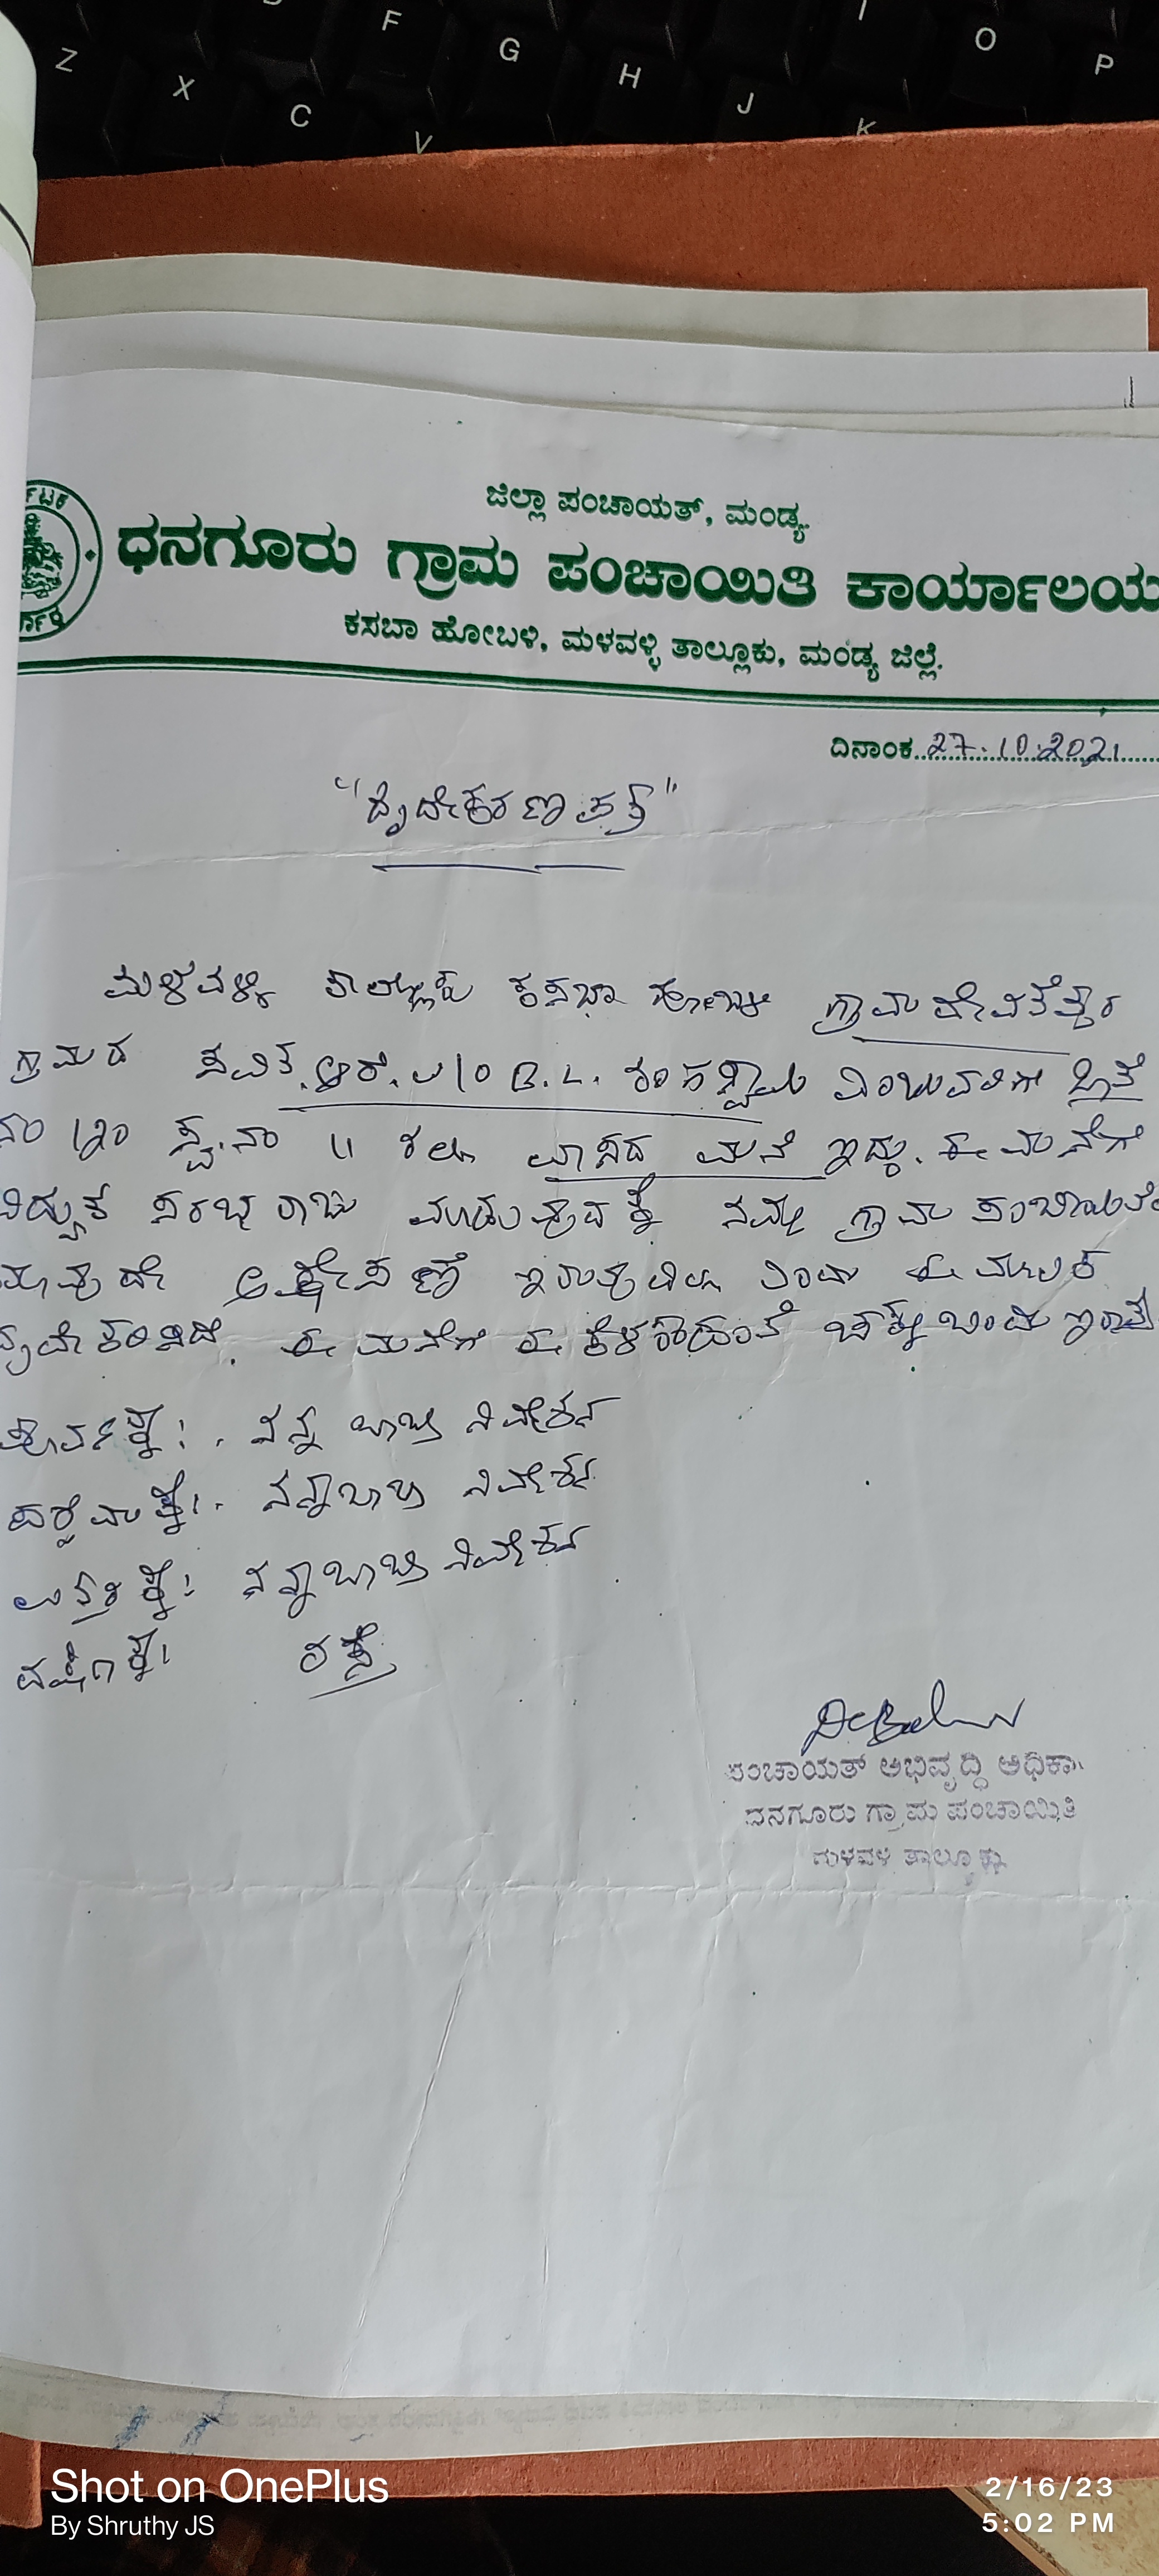 Z X C V F G H J K I O P
ಜಿಲ್ಲಾ ಪಂಚಾಯತ್, ಮಂಡ್ಯ.
ಧನಗೂರು ಗ್ರಾಮ ಪಂಚಾಯಿತಿ ಕಾರ್ಯಾಲಯ
ಕಸಬಾ ಹೋಬಳಿ, ಮಳವಳ್ಳಿ ತಾಲ್ಲೂಕು, ಮಂಡ್ಯ ಜಿಲ್ಲೆ.
ದಿನಾಂಕ 27.10.2021
"ದೃಢೀಕರಣ ಪತ್ರ"
ಮಳವಳ್ಳಿ ತಾಲ್ಲೂಕು ಕಸಬಾ ಹೋಬಳಿ ಗ್ರಾಮ
ಗ್ರಾಮದ ಸವಿತ.ಆರ್. ಎಂಬುವರಿಗೆ
ನಂ 120 ಸ್ವ.ನಂ 11 ರಲ್ಲಿ ವಾಸದ ಮನೆ ಇದ್ದು. ಈ ಮನೆಗೆ
ವಿದ್ಯುತ್ ಸರಬರಾಜು ಮಾಡುವುದಕ್ಕೆ ನಮ್ಮ ಗ್ರಾಮ
ಆಕ್ಷೇಪಣೆ ಇರುವುದಿಲ್ಲ ಎಂದು ಈ ಮೂಲಕ
ಈ ಮನೆಗೆ ಈ ಕೆಳಕಂಡಂತೆ ಚಕ್ಕುಬಂದಿ
ಪೂರ್ವಕ್ಕೆ: ನನ್ನ ಬಾಬ್ತು ನಿವೇಶನ
ಪಶ್ಚಿಮಕ್ಕೆ: ನನ್ನ ಬಾಬ್ತು ನಿವೇಶನ
ಉತ್ತರಕ್ಕೆ: ನನ್ನ ಬಾಬ್ತು ನಿವೇಶನ
ದಕ್ಷಿಣಕ್ಕೆ: ರಸ್ತೆ
ಪಂಚಾಯತ್ ಅಭಿವೃದ್ಧಿ ಅಧಿಕಾ
ಧನಗೂರು ಗ್ರಾಮ ಪಂಚಾಯಿತಿ
ಮಳವಳ್ಳಿ ತಾಲ್ಲೂಕು
Shot on OnePlus
By Shruthy JS
2/16/23
5:02 PM